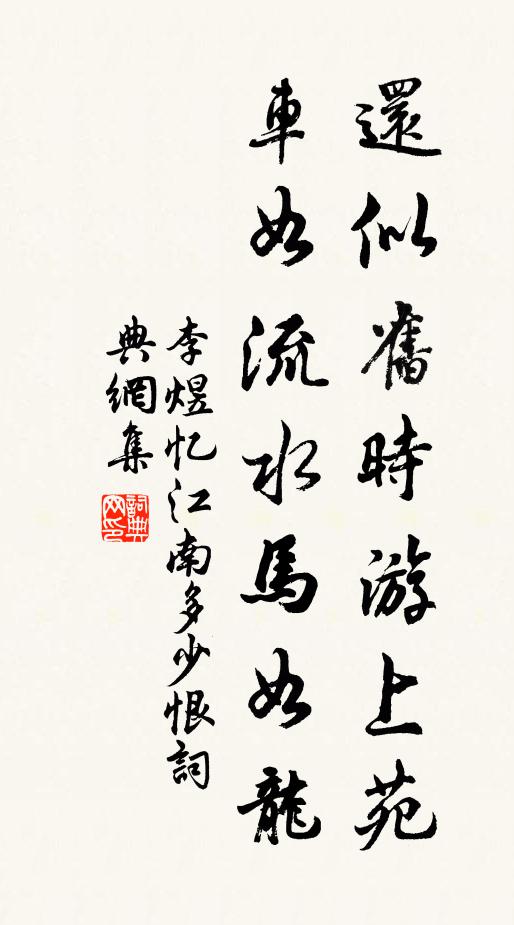 還似舊時游上苑
車如流水馬如龍
李煜忆江南多少恨詞
典網集
詞典网印